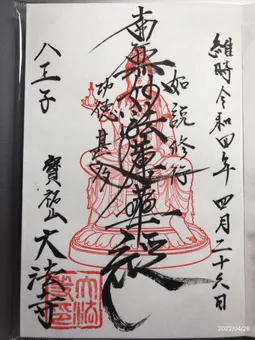 維時令和四年 四月二十六日
如説修行
南無妙法蓮華経
功徳甚多
八王子
寳銘山 大法寺
2022/04/26